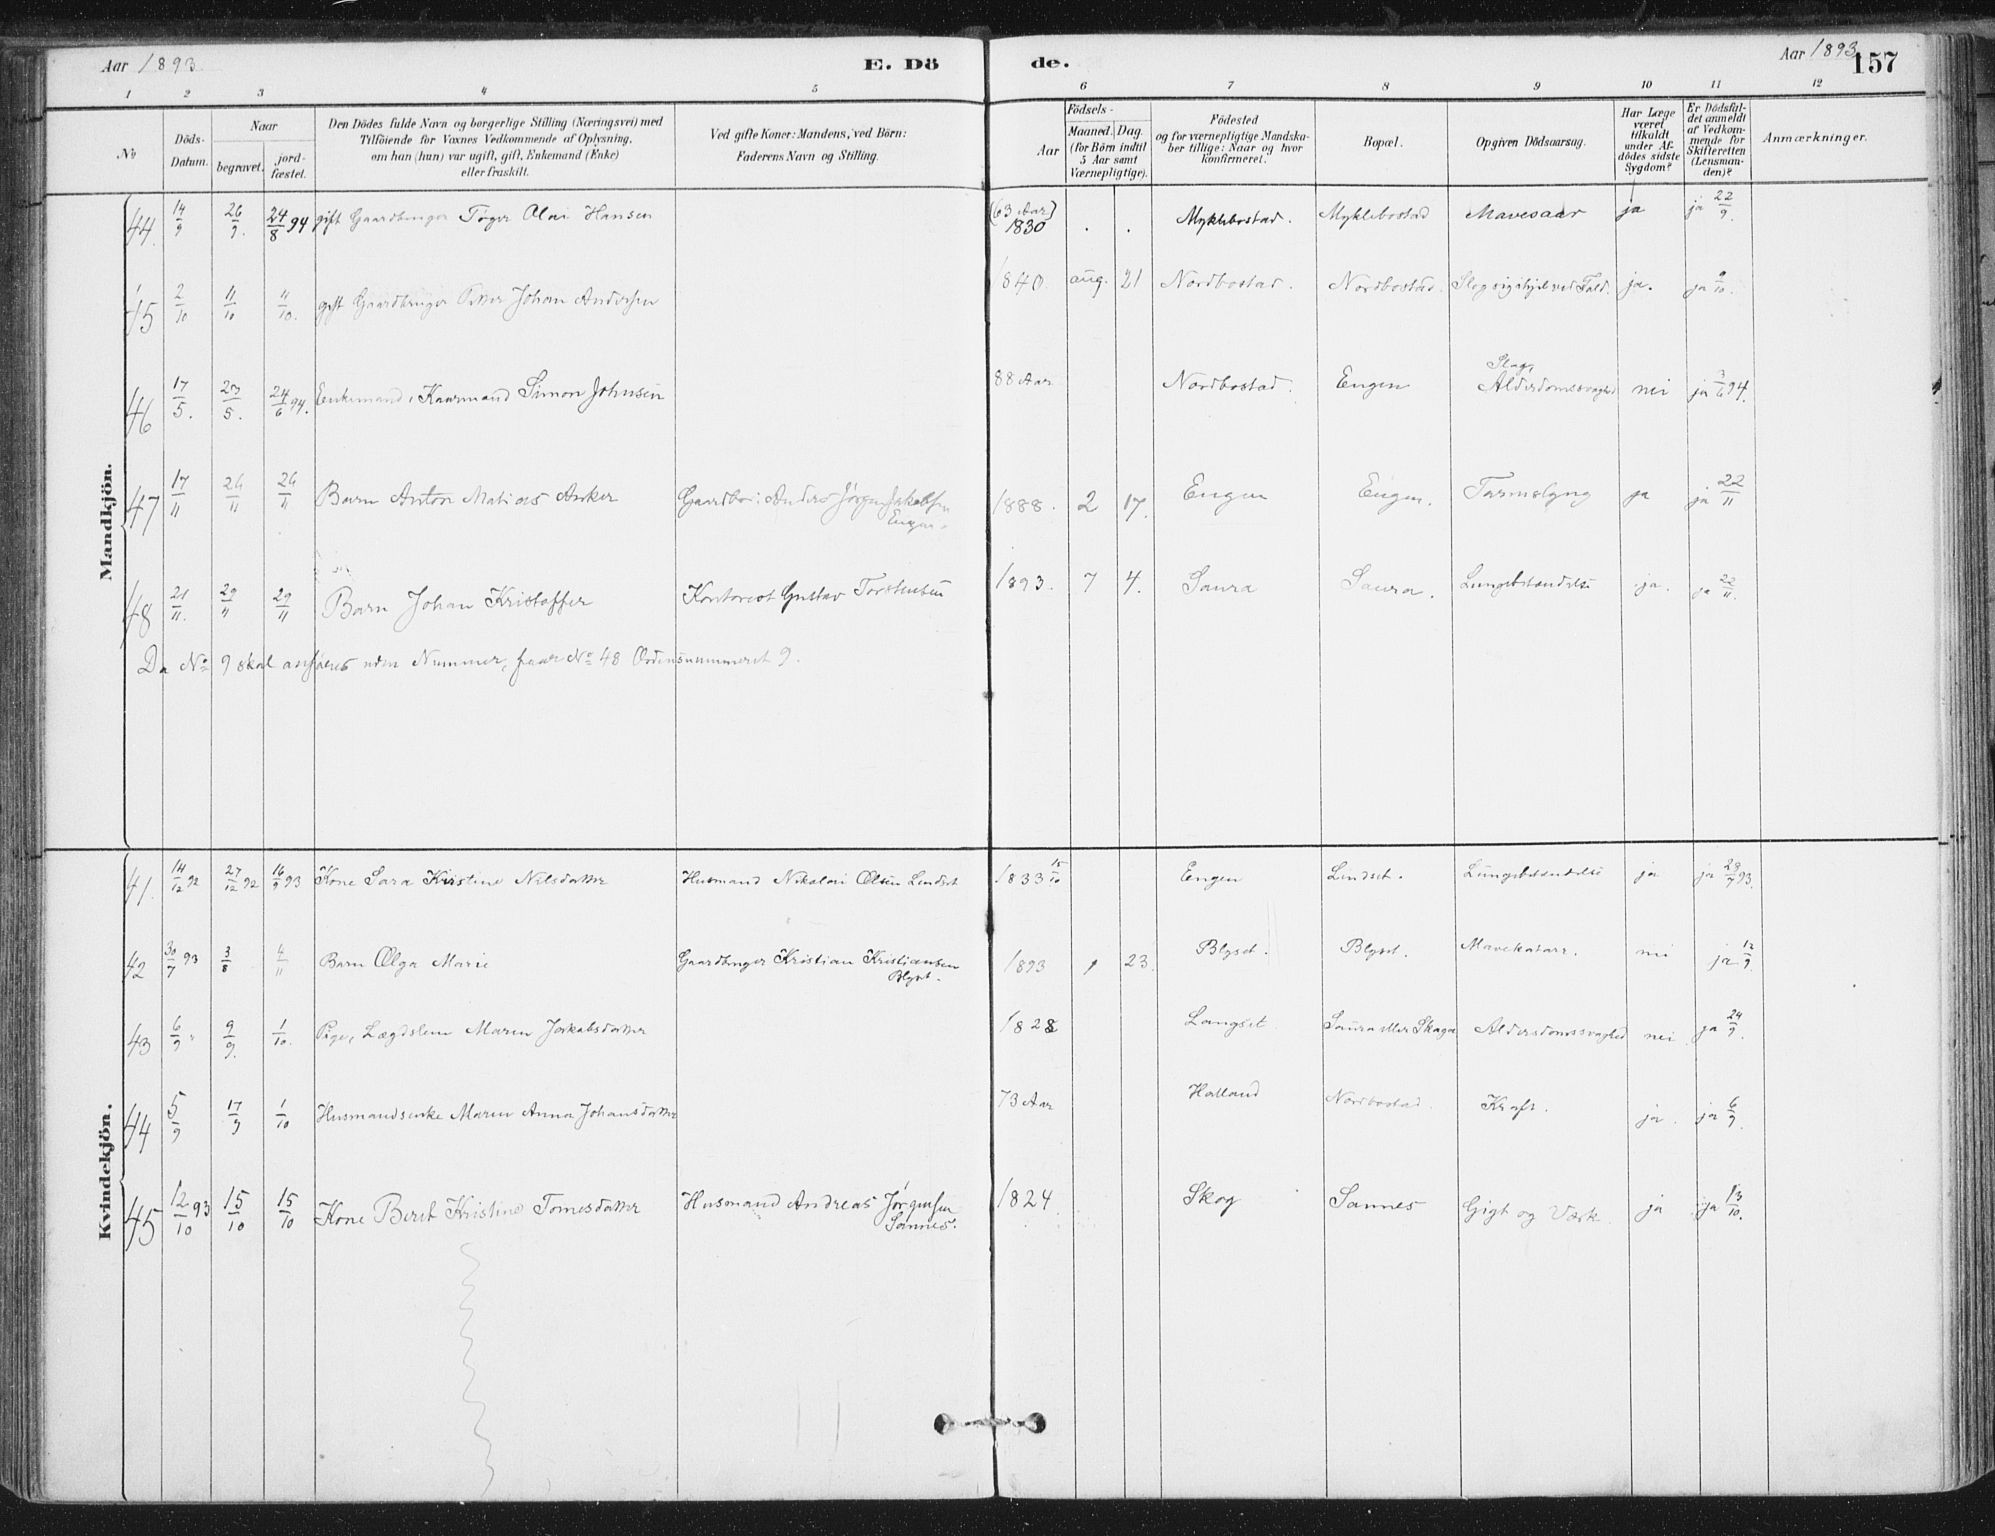 Aar 1893
E. Dö
de.
Aar 1893
157
1 2 3 4 5 6 7 8 9 10 11 12
No
Döds-Datum.
Naar
begravet.
jord-fæstet.
Den Dödes fulde Navn og borgerlige Stilling (Næringsvei) med
Tilföiende for Voxnes Vedkommende af Oplysning,
om han (hun) var ugift, gift, Enkemand (Enke)
eller fraskilt.
Ved gifte Koner: Mandens, ved Börn:
Faderens Navn og Stilling.
Födsels-
Aar
Maaned. Dag.
(for Börn indtil
5 Aar samt
Værnepligtige).
Födested
og for værnepligtige Mandska-
ber tillige: Naar og hvor
konfirmeret.
Bopæl.
Opgiven Dödsaarsag.
Har Læge
været
tilkaldt
under Af-
dödes sidste
Sygdom?
Er Dödsfal-
det anmeldt
af Vedkom-
mende for
Skifteretten
(Lensman-
den)?
Anmærkninger.
Mandkjön.
44. 14/9 26/9. 24/8 94 gift Gaardbruger Tøger Olai Hansen (63 Aar) 1830 . . Myklebostad. Myklebostad Mavesaar ja ja 22/9.
45 2/10 11/10 11/10. gift Gaardbruger Peter Johan Andersen 1840. aug. 21 Nordbostad. Nordbostad. Slog sig ihjel ved Fald. ja. ja 9/10.
46 17/5. 27/5. 24/6 94. Enkemand, Kaarmand Simon Johnsen 88 Aar Nordbostad. Engen Slag, Alderdomssvaghed nei ja 3/6 94.
47 17/11 26/11 26/11 Barn Anton Matias Anker Gaardbr: Anders Jørgen Jakobsen Engen. 1888. 2 17. Engen Engen. Tarmslyng ja ja 22/11
48 21/11. 29/11 29/11 Barn Johan Kristoffer Kontorist Gustav Torstensen 1893. 7 4. Saura Saura. Lungebetændelse ja. ja 22/11.
Da No 9 skal anføres uden Nummer, faar No 48 Ordensnummeret 9.
Kvindekjön.
41. 14/12 92 27/12 92 16/9 93 Kone Sara Kristine Nilsdatter Husmand Nikolai Olsen Lendset 1833 15/10 Engen Lendset. Lungebetændelse ja ja 29/7 93.
42 30/7 93 3/8 4/11 Barn Olga Marie Gaardbruger Kristian Kristiansen Blyset. 1893 1 23. Blyset. Blyset. Mavekatarr. nei ja 12/9.
43 6/9 " 9/9. 1/10. Pige, Lægdslem Maren Jakobsdatter 1828 Langset Saura eller Skaga Alderdomssvaghed nei. ja 24/9.
44 5/9 17/9 1/10 Husmandsenke Maren Anna Johansdatter 73 Aar Halland Nordbostad. Kræft. ja. ja 6/9.
45 12/10 93 15/10 15/10 Kone Berit Kristine Tomesdatter Husmand Andreas Jørgensen Sannes. 1824 Skog Sannes Gigt og Værk. ja ja 13/10.